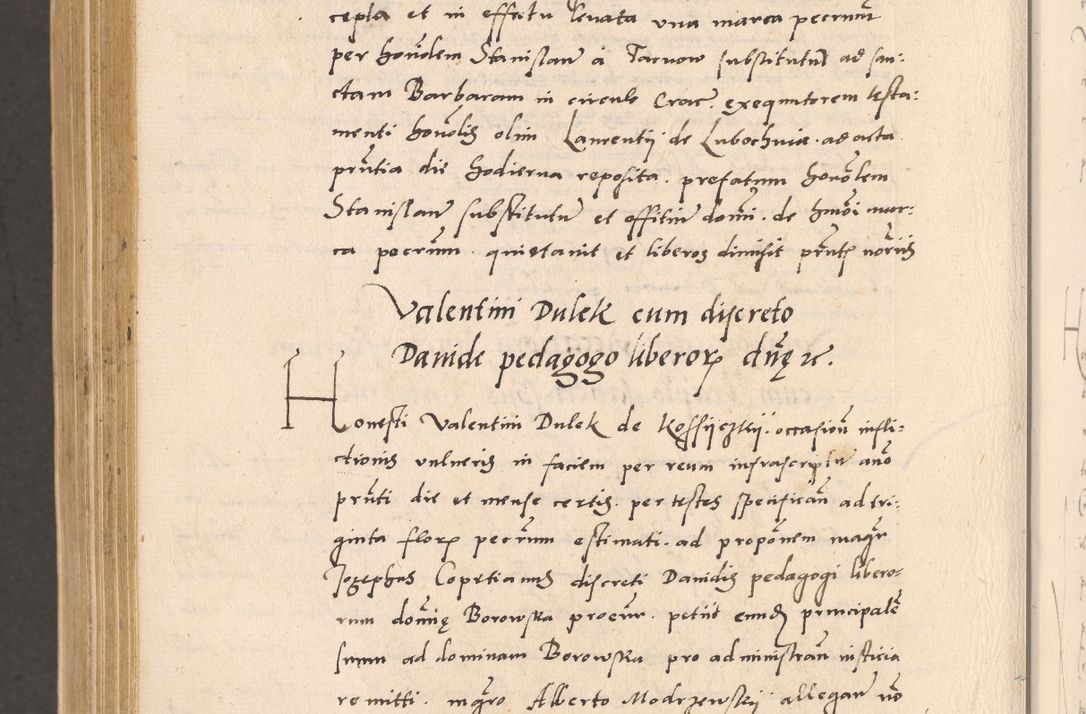 cepta et in effectu levata una marca pecunm
per honolem Stanislaum a Tarnow substitutum ad san:
ctam Barbaram in circulo Crac. exequutorem testa:
menti honolis olim Laurentij de Lubochnia. ad acta
prntia die hodierna reposita. prefatum honolem
Stanislaum substitutum et offitium domi. de hmoi mar:
ca pecunm. quietavit et liberos dimisit prnte
Valentini Dulek cum discreto
Davide pedagogo liberorum dnę etc.
Honesti Valentini Dulek de Kossijczkij. occasion infli:
ctionis vulneris in faciem per reum infrascriptum anno
prnti die et mense certis. per testes specifican ad tri:
ginta florum pecunm estimati. ad proponem magr
Jozephus Copetianus discreti Davidis pedagogi libero:
rum domię Borowska procur. petiit eundem principalem
suum ad dominam Borowska pro administran iusticia
remitti. mgro Alberto Modrzewskij allegan